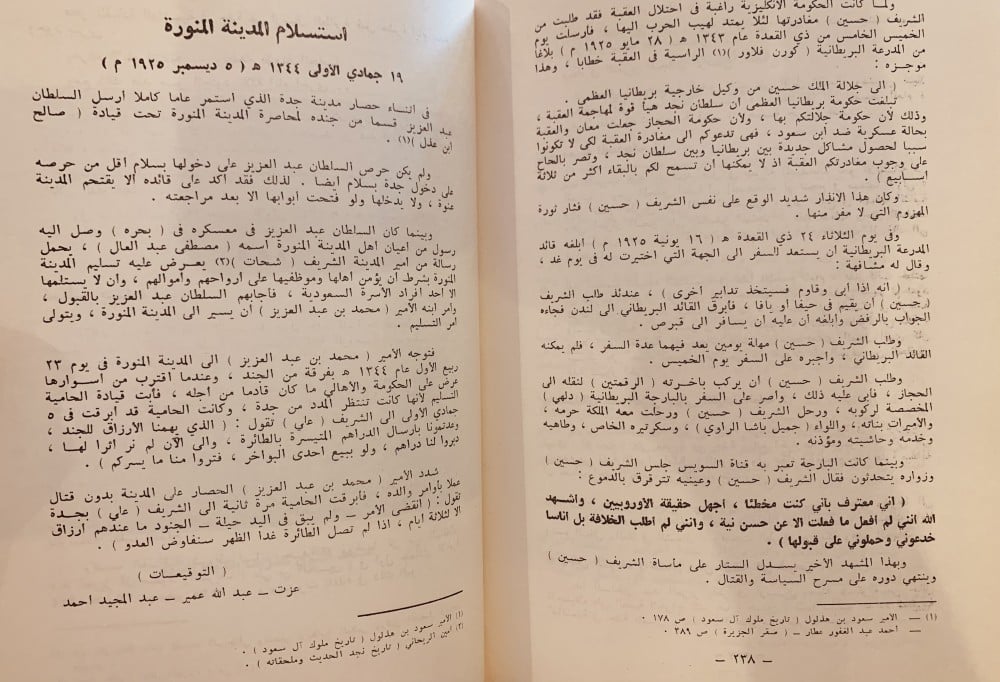 ولما كانت الحكومة الانكليزية راغبة في احتلال العقبة فقد طلبت من
الشريف ( حسين ) مغادرتها لئلا يمتد لهيب الحرب اليها ، فأرسلت يوم
الخميس الخامس من ذي القعدة عام ١٣٤٣ هـ ( ٢٨ مايو ١٩٢٥ م ) بلاغا
من المدرعة البريطانية ( كورن فلاور )(١) الراسية في العقبة خطابا ، وهذا
موجزه :
( الى جلالة الملك حسين من وكيل خارجية بريطانيا العظمى .
تبلغت حكومة بريطانيا العظمى ان سلطان نجد هيأ قوة لمهاجمة العقبة ،
وذلك لأن حكومة جلالتكم بها ، ولأن حكومة الحجاز جعلت معان والعقبة
بحالة عسكرية ضد ابن سعود ، فهي تدعوكم الى مغادرة العقبة لكي لا تكونوا
سببا لحصول مشاكل جديدة بين بريطانيا وبين سلطان نجد ، وتصر بالحاح
على وجوب مغادرتكم العقبة اذ لا يمكنها أن تسمح لكم بالبقاء أكثر من ثلاثة
أسابيع ) .
وكان هذا الانذار شديد الوقع على نفس الشريف ( حسين ) فثار ثورة
المهزوم التي لا مفر منها .
وفي يوم الثلاثاء ٢٤ ذي القعدة هـ ( ١٦ يونية ١٩٢٥ م ) ابلغه قائد
المدرعة البريطانية أن يستعد السفر الى الجهة التي اختيرت له في يوم غد ،
وقال له مشافهة :
( انه اذا أبى وقاوم فسيتخذ تدابير أخرى ) ، عندئذ طلب الشريف
( حسين ) أن يقيم في حيفا أو يافا ، فأبرق القائد البريطاني الى لندن فجاءه
الجواب بالرفض وابلغه ان عليه أن يسافر الى قبرص .
وطلب الشريف ( حسين ) مهلة يومين يعد فيهما عدة السفر ، فلم يمكنه
القائد البريطاني ، وأجبره على السفر يوم الخميس .
وطلب الشريف ( حسين ) ان يركب باخرته ( الرقمتين ) لتقله الى
الحجاز ، فأبى عليه ذلك ، وأصر على السفر بالبارجة البريطانية ( دلهي )
المخصصة لركوبه ، ورحل الشريف ( حسين ) ورحلت معه الملكة حرمه ،
والأميرات بناته ، واللواء ( جميل باشا الراوي ) ، وسكرتيره الخاص ، وطاهيه
وخدمه وحاشيته ومؤذنه .
وبينما كانت البارجة تعبر به قناة السويس جلس الشريف ( حسين )
وزواره يتحدثون فقال الشريف ( حسين ) وعينيه تترقرق بالدموع :
( أني معترف بأني كنت مخطئا ، أجهل حقيقة الأوروبيين ، وأشهد
الله أنني لم أفعل ما فعلت الا عن حسن نية ، وأنني لم أطلب الخلافة بل أناسا
خدعوني وحملوني على قبولها ) .
وبهذا المشهد الأخير يسدل الستار على مأساة الشريف ( حسين )
وينتهي دوره على مسرح السياسة والقتال .
(١) — الأمير سعود بن هذلول ( تاريخ ملوك آل سعود ) ص ١٧٨ .
— أحمد عبد الغفور عطار — ( صقر الجزيرة ) ص ٣٨٩ .
— ٢٣٨ —
استسلام المدينة المنورة
١٩ جمادي الأولى ١٣٤٤ هـ ( ٥ ديسمبر ١٩٢٥ م )
في اثناء حصار مدينة جدة الذي استمر عاما كاملا أرسل السلطان
عبد العزيز قسما من جنده لمحاصرة المدينة المنورة تحت قيادة ( صالح
ابن عذل )(١) .
ولم يكن حرص السلطان عبد العزيز على دخولها بسلام أقل من حرصه
على دخول جدة بسلام أيضا . لذلك فقد أكد على قائده ألا يقتحم المدينة
عنوة ، ولا يدخلها ولو فتحت أبوابها الا بعد مراجعته .
وبينما كان السلطان عبد العزيز في معسكره في ( بحره ) وصل اليه
رسول من أعيان أهل المدينة المنورة اسمه ( مصطفى عبد العال ) ، يحمل
رسالة من أمير المدينة الشريف ( شحات )(٢) يعرض عليه تسليم المدينة
المنورة بشرط أن يؤمن أهلها وموظفيها على أرواحهم وأموالهم ، وأن لا يستلمها
الا أحد أفراد الأسرة السعودية ، فأجابهم السلطان عبد العزيز بالقبول ،
وأمر ابنه الأمير ( محمد بن عبد العزيز ) أن يسير الى المدينة المنورة ، ويتولى
أمر التسليم .
فتوجه الأمير ( محمد بن عبد العزيز ) الى المدينة المنورة في يوم ٢٣
ربيع الأول عام ١٣٤٤ هـ بفرقة من الجند ، وعندما اقترب من أسوارها
عرض على الحكومة والأهالي ما كان قادما من أجله ، فأبت قيادة الحامية
التسليم لأنها كانت تنتظر المدد من جدة ، وكانت الحامية قد أبرقت في ٥
جمادي الأولى الى الشريف ( علي ) تقول : ( الذي يهمنا الأرزاق للجند ،
وعدتمونا بارسال الدراهم المتيسرة بالطائرة ، والى الآن لم نر أثرا لها ،
دبروا لنا دراهم ، ولو ببيع احدى البواخر ، فتروا منا ما يسركم ) .
شدد الأمير ( محمد بن عبد العزيز ) الحصار على المدينة بدون قتال
عملا بأوامر والده ، فأبرقت الحامية مرة ثانية الى الشريف ( علي ) بجدة
تقول : ( انقضى الأمر — ولم يبق في اليد حيلة — الجنود ما عندهم أرزاق
الا لثلاثة أيام ، اذا لم تصل الطائرة غدا الظهر سنفاوض العدو ) .
( التوقيعات )
عزت — عبد الله عمير — عبد المجيد أحمد
(١) الأمير سعود بن هذلول ( تاريخ ملوك آل سعود ) .
(٢) أمين الريحاني ( تاريخ نجد الحديث وملحقاته ) .